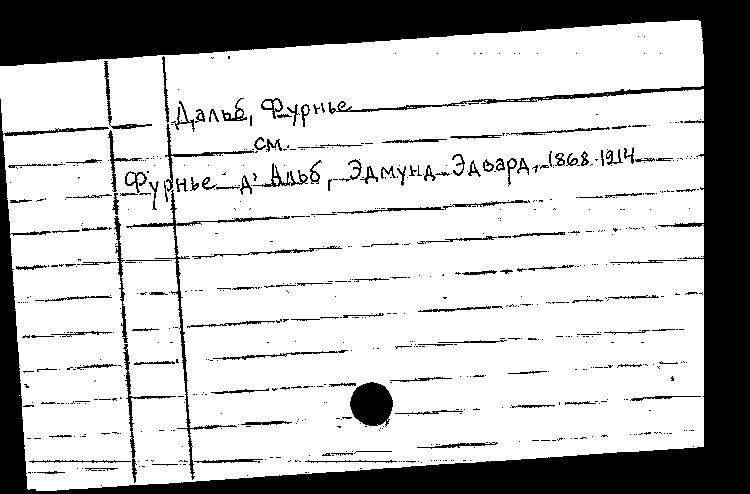 Дальб, Фурнье
см.
Фурнье д' Альб, Эдмунд Эдвард, 1868-1914